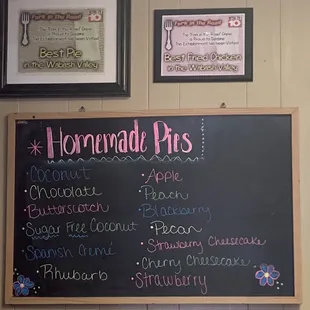 Fork in the Road
Best Pie
in the Wabash Valley
Fork in the Road
Best Fried Chicken
in the Wabash Valley
* Homemade Pies
• Coconut
• Chocolate
• Butterscotch
• Sugar Free Coconut
• Spanish Creme
• Rhubarb
• Apple
• Peach
• Blackberry
• Pecan
• Strawberry Cheesecake
• Cherry Cheesecake
• Strawberry